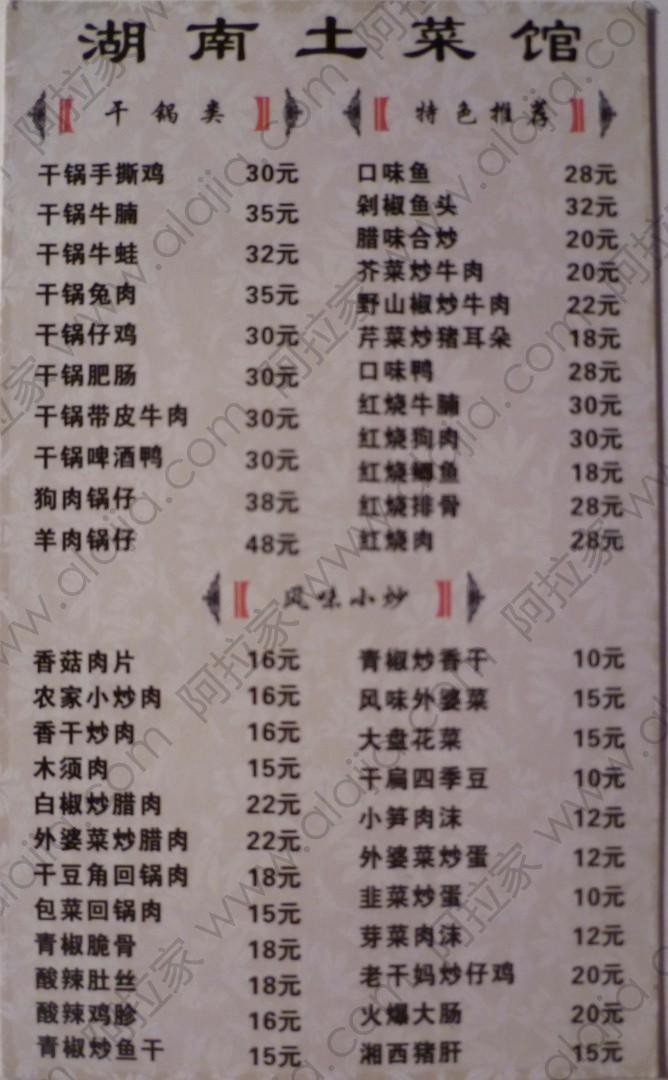 湖南土菜馆
干锅类
干锅手撕鸡 30元
干锅牛腩 35元
干锅牛蛙 32元
干锅兔肉 35元
干锅仔鸡 30元
干锅肥肠 30元
干锅带皮牛肉 30元
干锅啤酒鸭 30元
狗肉锅仔 38元
羊肉锅仔 48元
特色推荐
口味鱼 28元
剁椒鱼头 32元
腊味合炒 20元
芥菜炒牛肉 20元
野山椒炒牛肉 22元
芹菜炒猪耳朵 18元
口味鸭 28元
红烧牛腩 30元
红烧狗肉 30元
红烧鲫鱼 18元
红烧排骨 28元
红烧肉 28元
风味小炒
香菇肉片 16元
农家小炒肉 16元
香干炒肉 16元
木须肉 15元
白椒炒腊肉 22元
外婆菜炒腊肉 22元
干豆角回锅肉 18元
包菜回锅肉 15元
青椒脆骨 18元
酸辣肚丝 18元
酸辣鸡胗 16元
青椒炒鱼干 15元
青椒炒香干 10元
风味外婆菜 15元
大盘花菜 15元
干扁四季豆 10元
小笋肉沫 12元
外婆菜炒蛋 12元
韭菜炒蛋 10元
芽菜肉沫 12元
老干妈炒仔鸡 20元
火爆大肠 20元
湘西猪肝 15元
阿拉家 www.alajia.com